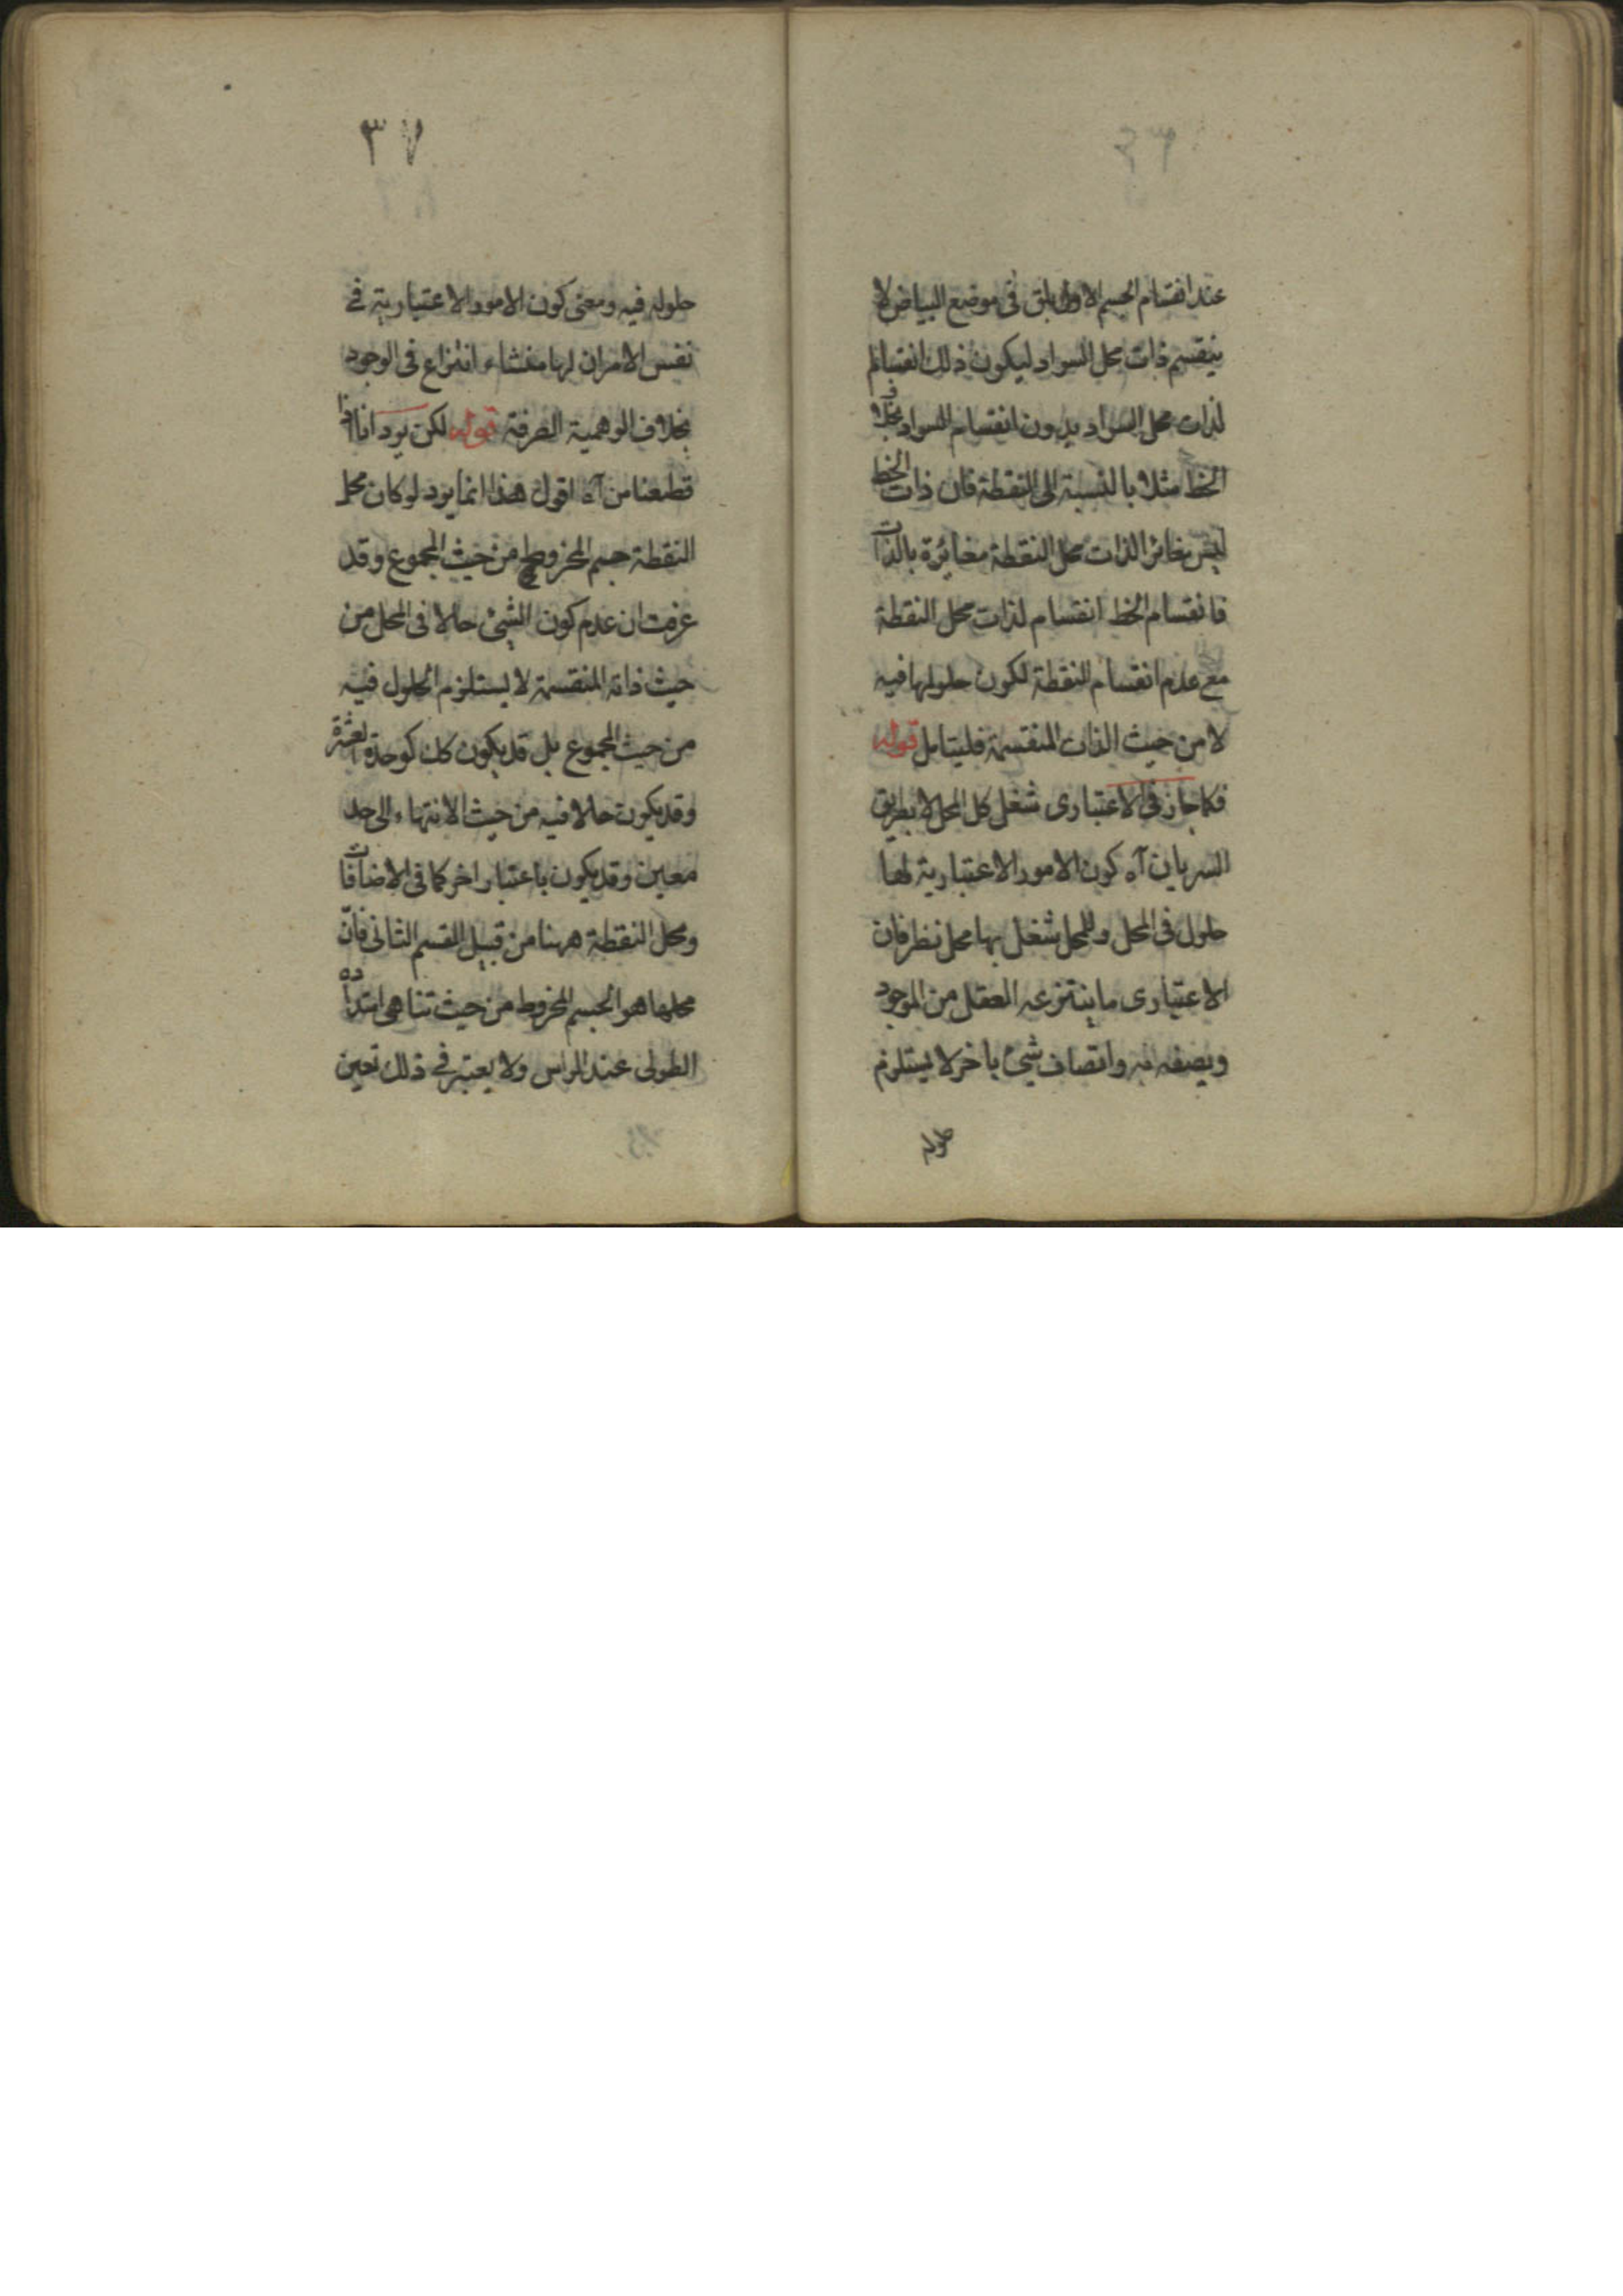 عند انقسام الجسم الاول بلق فى موضع البياض لا
ينقسم ذات محل السواد ليكون ذلك انقساما
لذات محل السواد بدون انقسام السواد بخلاف
الخط مثلا بالنسبة الى النقطة فان ذات الخط
ليس مغائر الذات محل النقطة مغائرة بالذات
فانقسام الخط انقسام لذات محل النقطة
مع عدم انقسام النقطة لكون حلولها فيه
لا من حيث الذات المنقسمة فليتامل قوله
فكما جاز فى الاعتبارى شغل كل المحل لا بطريق
السريان آه كون الامور الاعتبارية لها
حلول فى المحل وللمحل شغل بها محل نظر فان
الاعتبارى ما ينتزعه العقل من الموجود
ويصفه به واتصاف شيئ باخر لا يستلزم
حلوله
٣٧
حلوله فيه ومعنى كون الامور الاعتبارية فے
نفس الامر ان لها منشاء انتزاع فى الوجود
بخلاف الوهمية الصرفة قوله لكن يرد انا اذا
قطعنا من آه اقول هذا انما يرد لو كان محل
النقطة جسم المخروط من حيث المجموع وقد
عرفت ان عدم كون الشيئ حالا فى المحل من
حيث ذاته المنقسمة لا يستلزم الحلول فيه
من حيث المجموع بل قد يكون كك كوحدة العشرة
وقد يكون حالا فيه من حيث الانتهاء الى حد
معين وقد يكون باعتبار اخر كما فى الاضافات
ومحل النقطة ههنا من قبيل القسم الثانى فانّ
محلها هو الجسم المخروط من حيث تناهى امتداده
الطولى عند الراس ولا يعتبر فے ذلك تعين